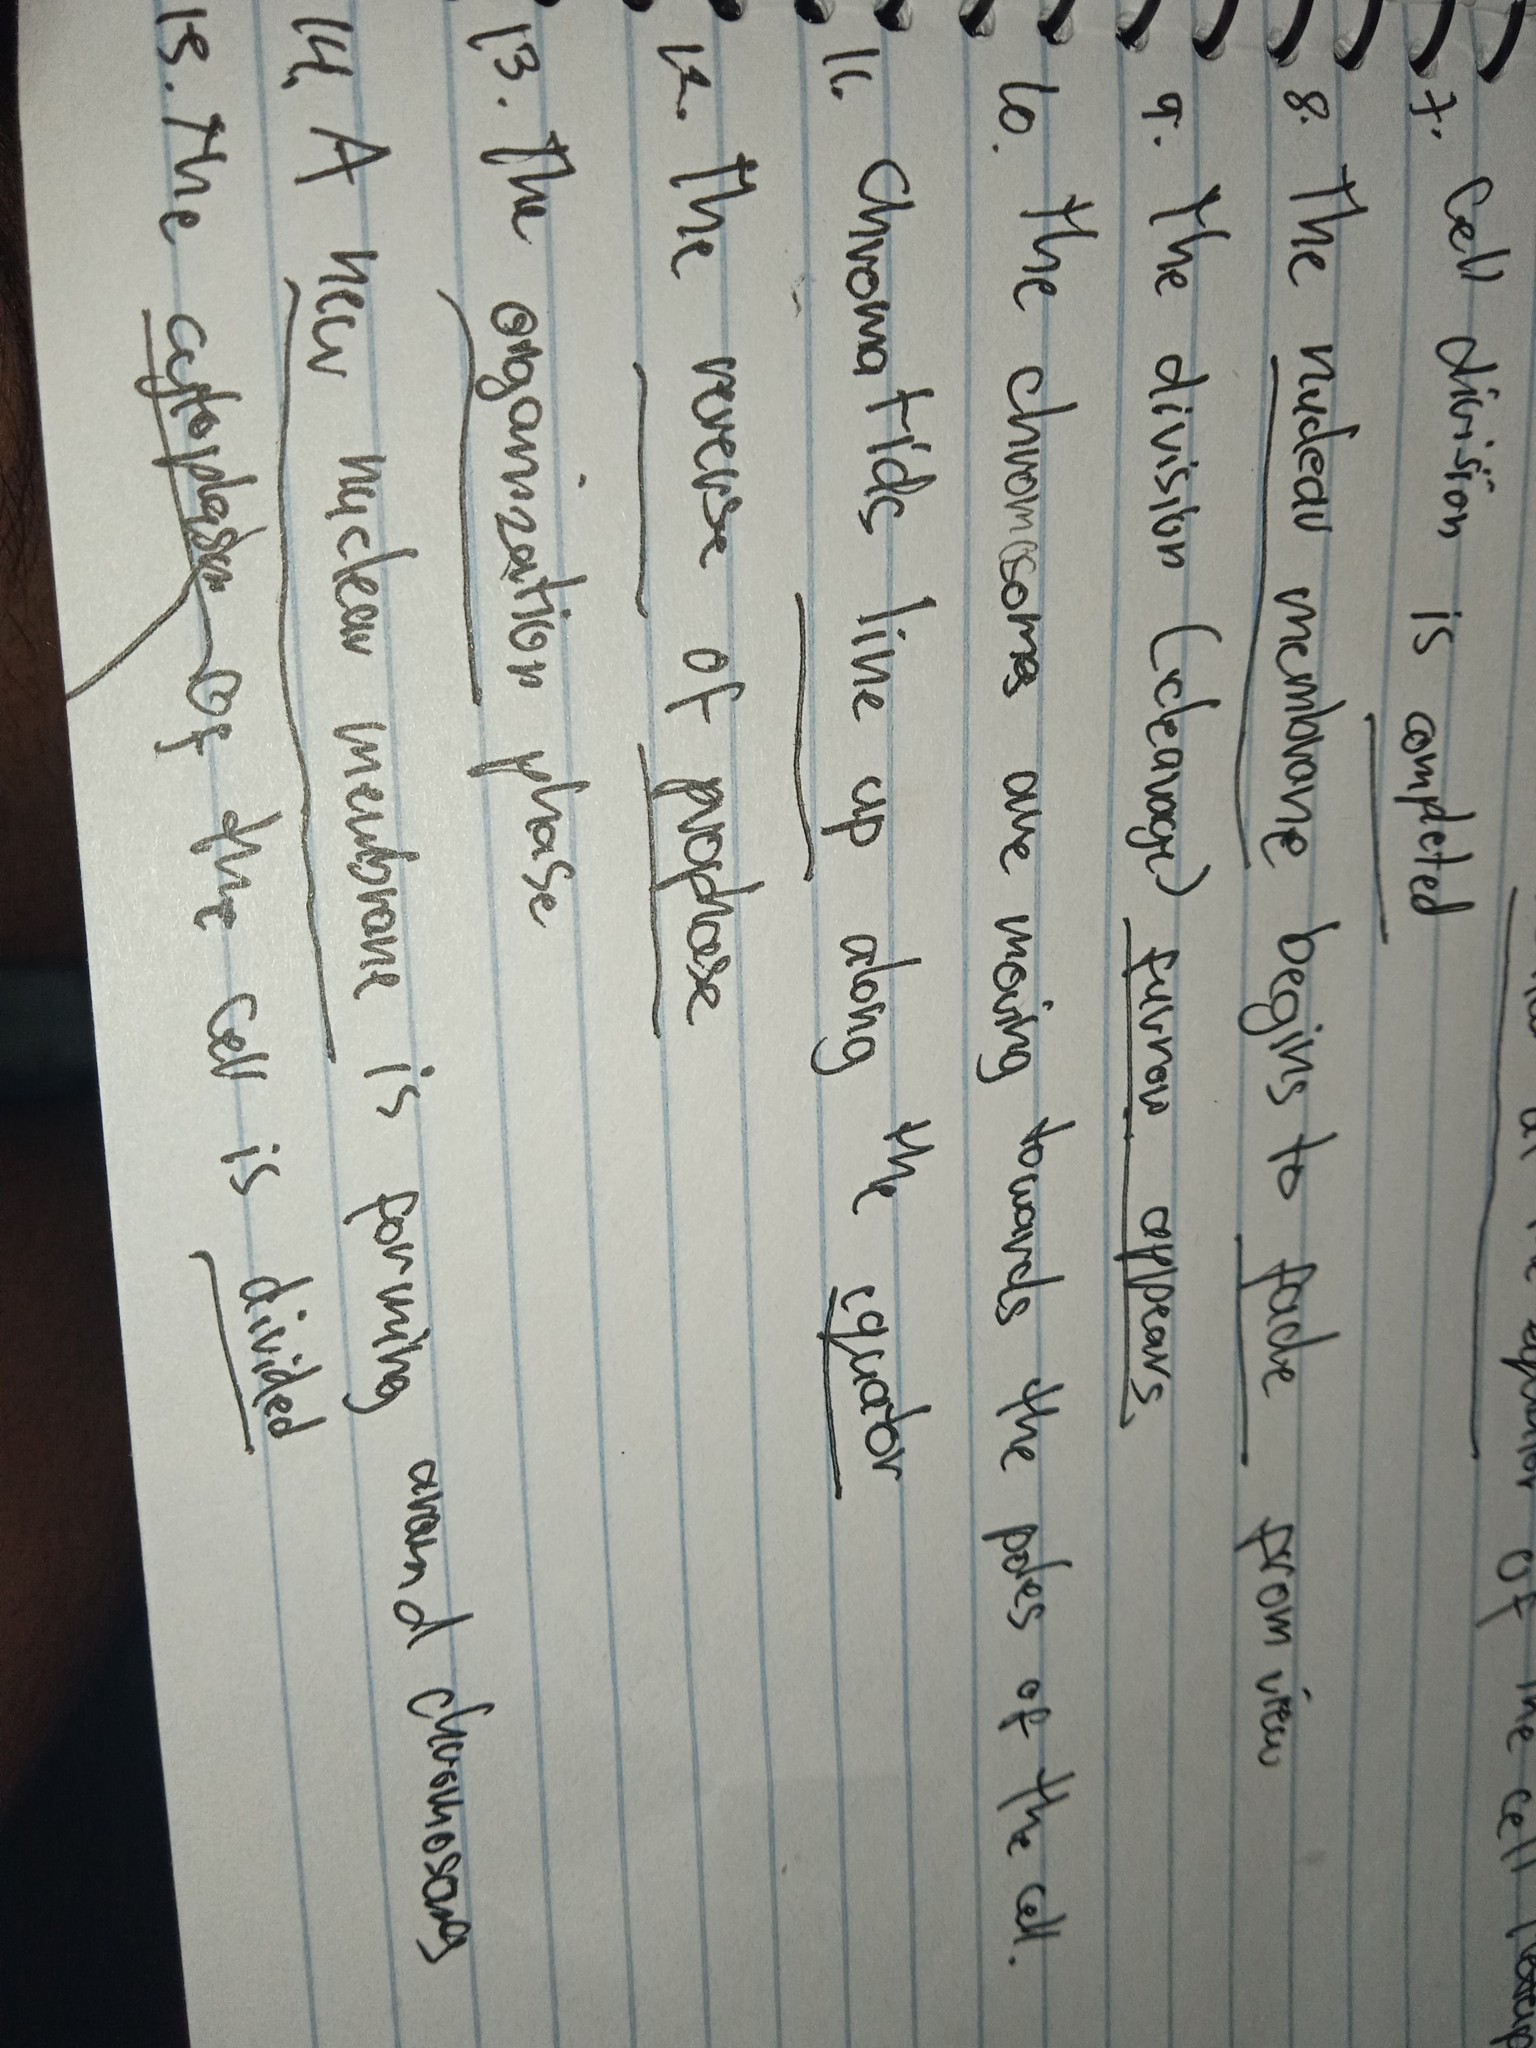 at the equator of the cell
7. Cell division is completed
8. The nuclear membrane begins to fade from view
9. The division (cleavage) furrow appears
10. The chromosomes are moving towards the poles of the cell.
11. Chromatids line up along the equator
12. The reverse of prophase
13. The organization phase
14. A new nuclear membrane is forming around chromosomes
15. The cytoplasm of the cell is divided